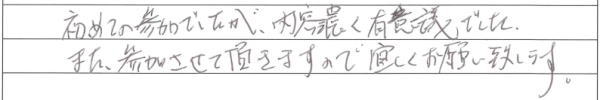 初めての参加でしたが、内容濃く有意議でした。
また、参加させて頂きますので宜しくお願い致します。